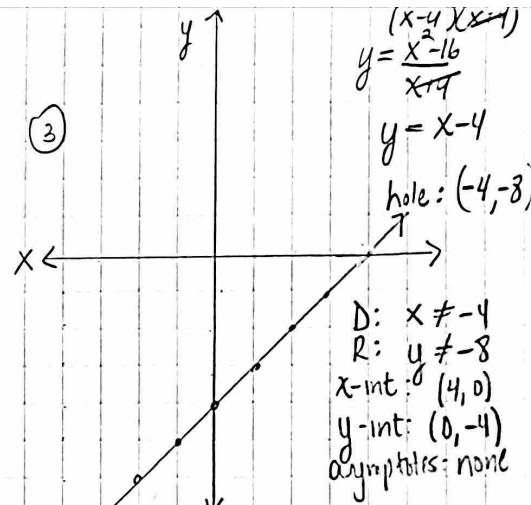 y
(x-4)(x+4)
y = x²-16
x+4
③
y = x-4
hole: (-4,-8)
x
D: x ≠ -4
R: y ≠ -8
x-int: (4,0)
y-int: (0,-4)
asymptotes: none